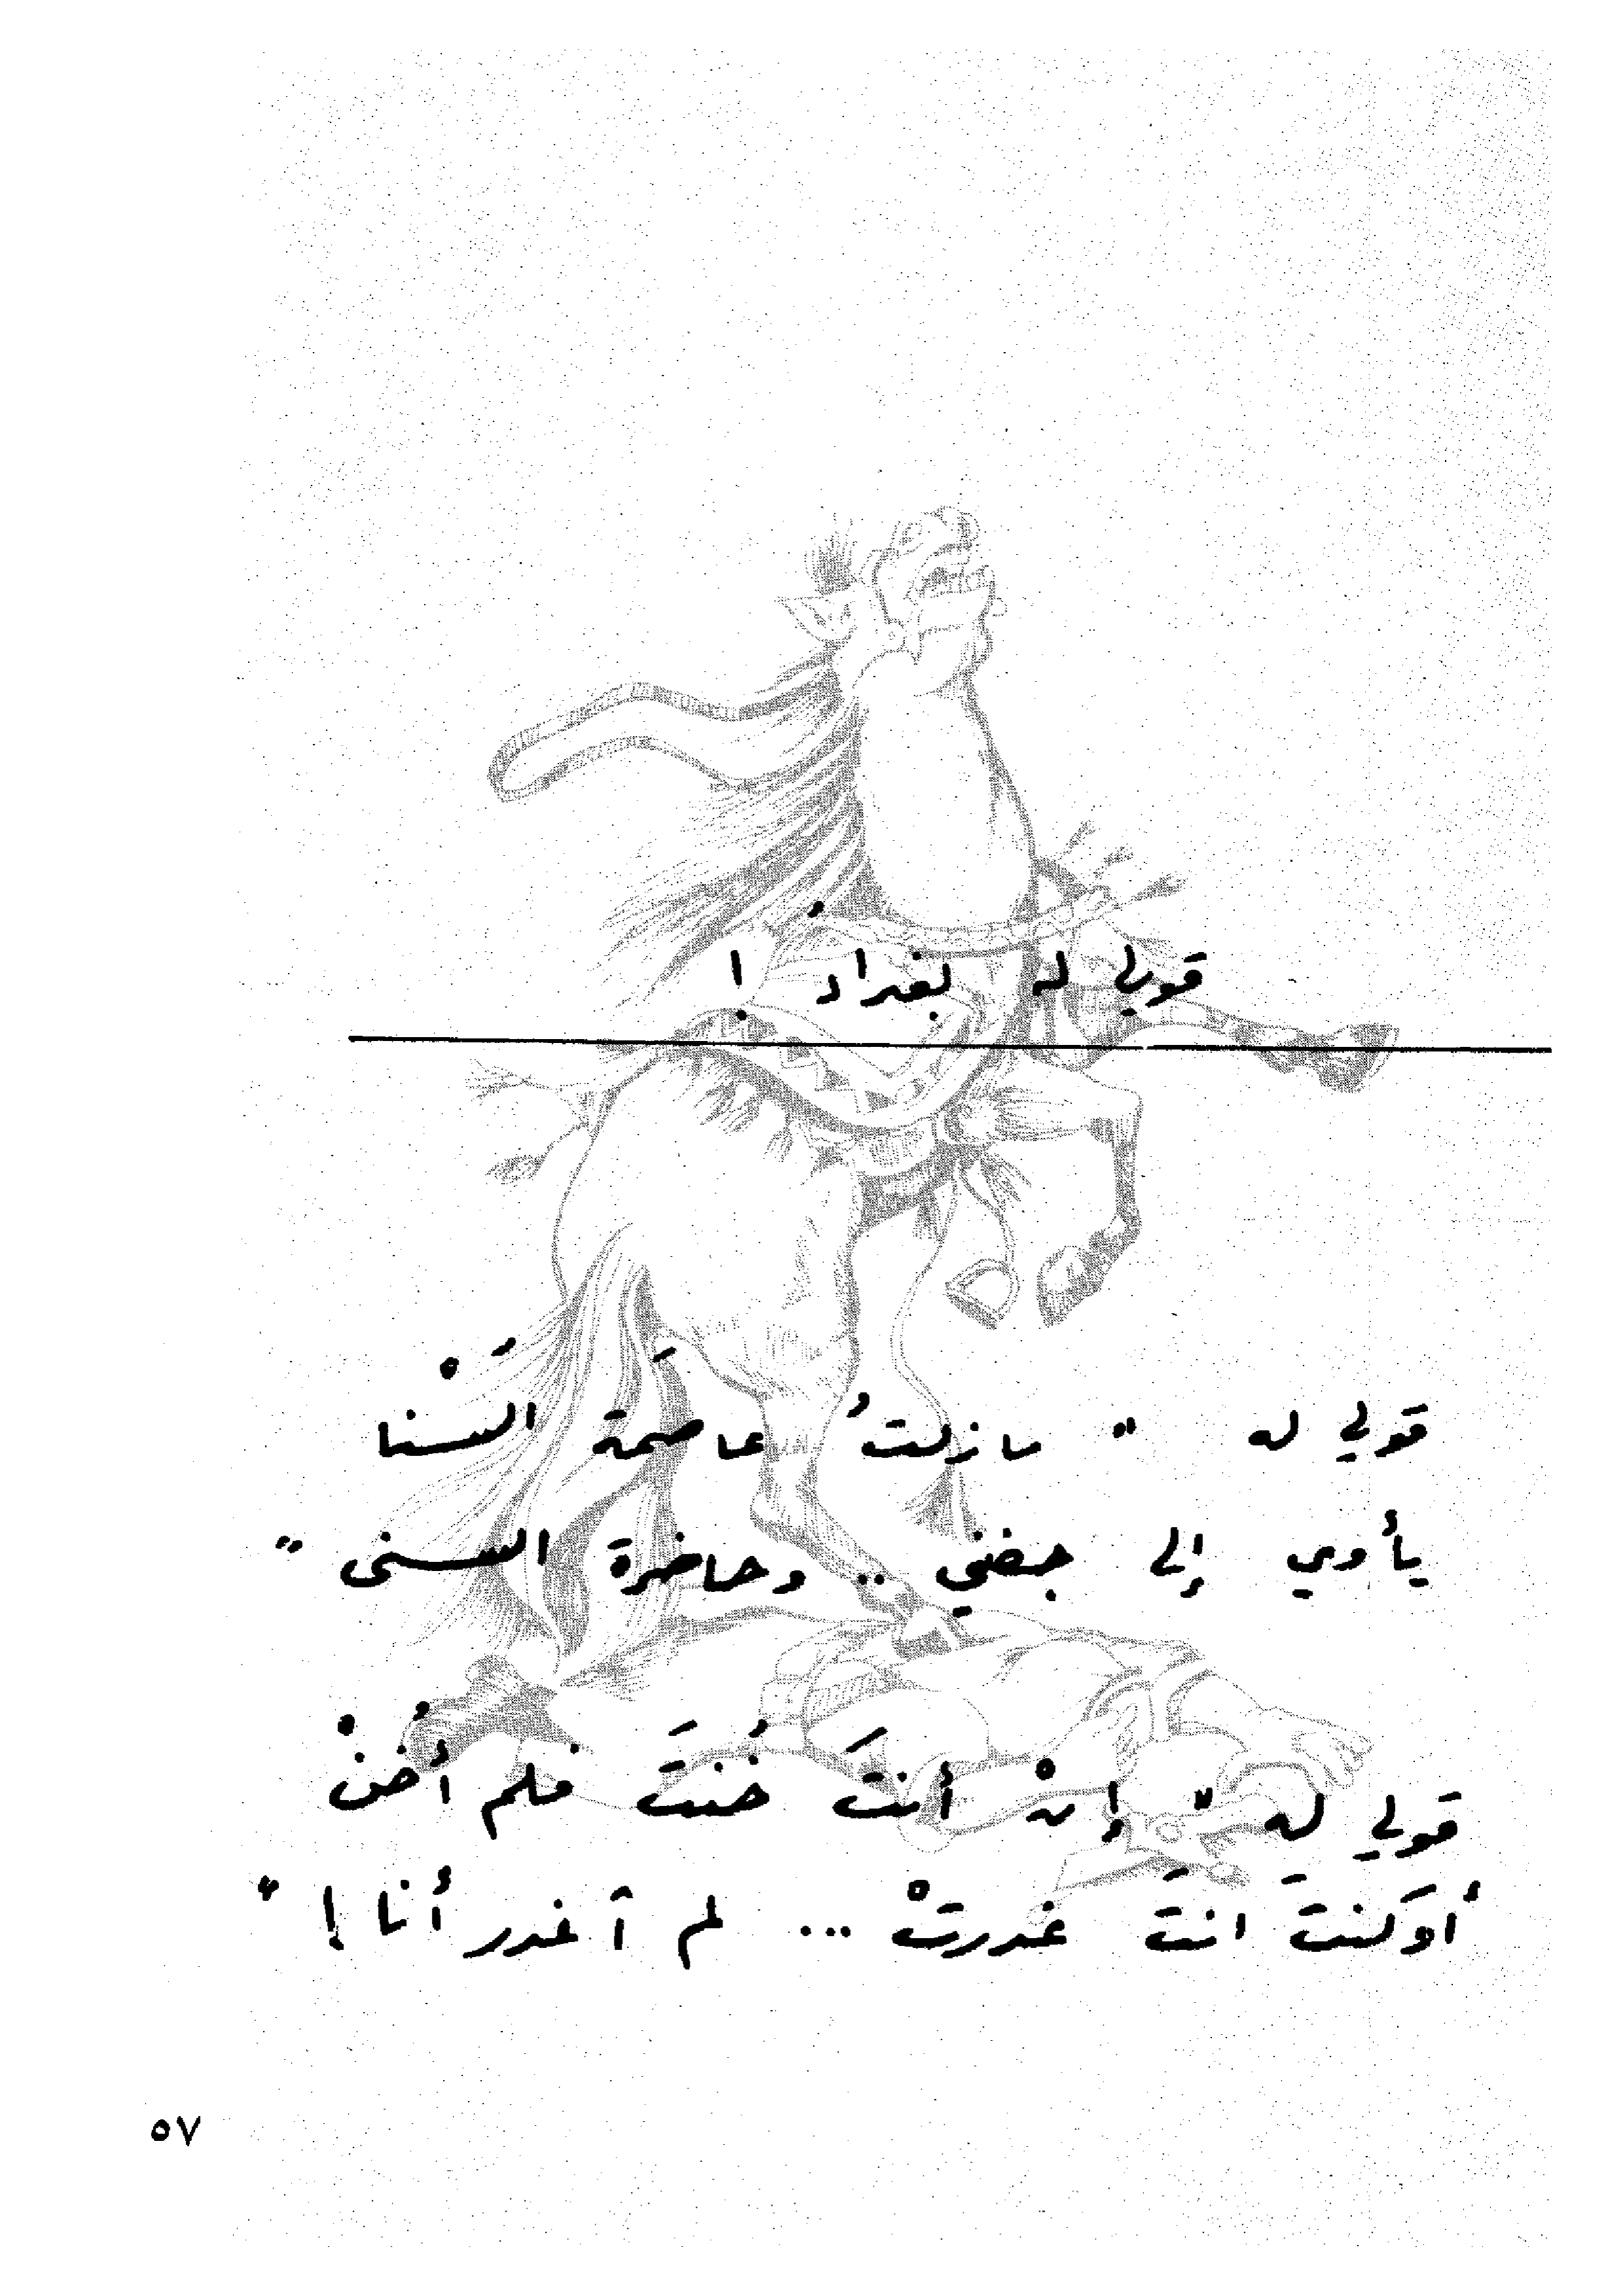 قولي له بغدادُ !
قولي له " ما زلتُ عاصمةَ السَنْا
يأوي إلى جفني .. وحاضرة السنى "
قولي له " إنْ أنتَ خُنتَ فلم أخُنْ
أوَكنتَ انتَ غدرتْ ... لم آغدر أنا ! "
٥٧